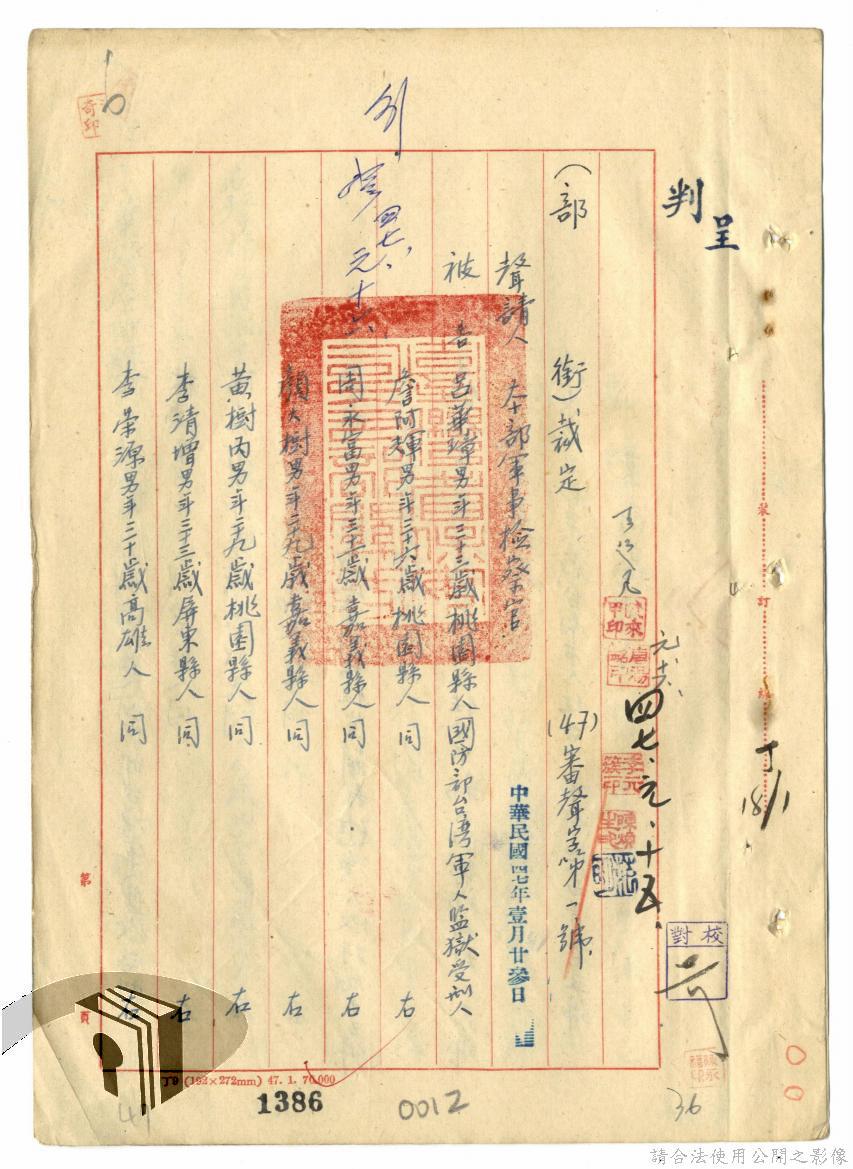 判
呈
(部　　　銜)裁定
(47)審聲字第一號
聲請人　本部軍事檢察官
中華民國四七年壹月廿參日
被　告　呂華璋男年三十三歲桃園縣人國防部台灣軍人監獄受刑人
詹阿輝男年三十六歲桃園縣人同右
周永富男年三十一歲嘉義縣人同右
顏大樹男年二十九歲嘉義縣人同右
黃樹丙男年二九歲桃園縣人同右
李清增男年三十三歲屏東縣人同右
李榮源男年三十歲高雄人同右
四七、元、十六
元、十六、
四七、元、十五、
裝
訂
線
18/1
校對
奇印
第
頁
T9 (192×272mm) 47. 1. 70,000
1386
0012
36
請合法使用公開之影像